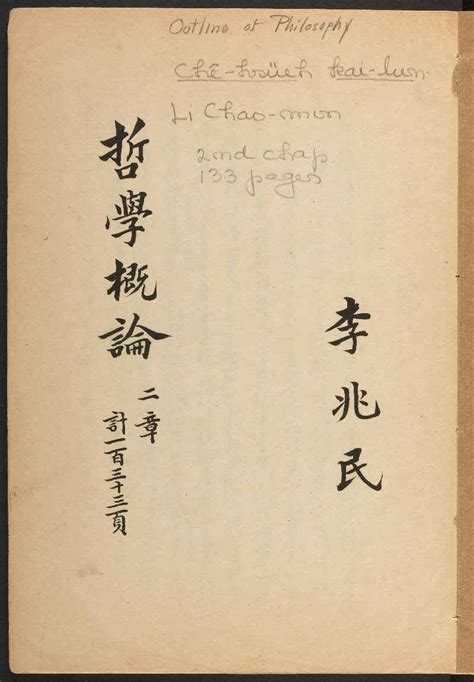 Outline of Philosophy
Chê-hsüeh kai-lun.
Li Chao-min
2nd chap.
133 pages
李兆民
哲學概論
二章
計一百三十三頁